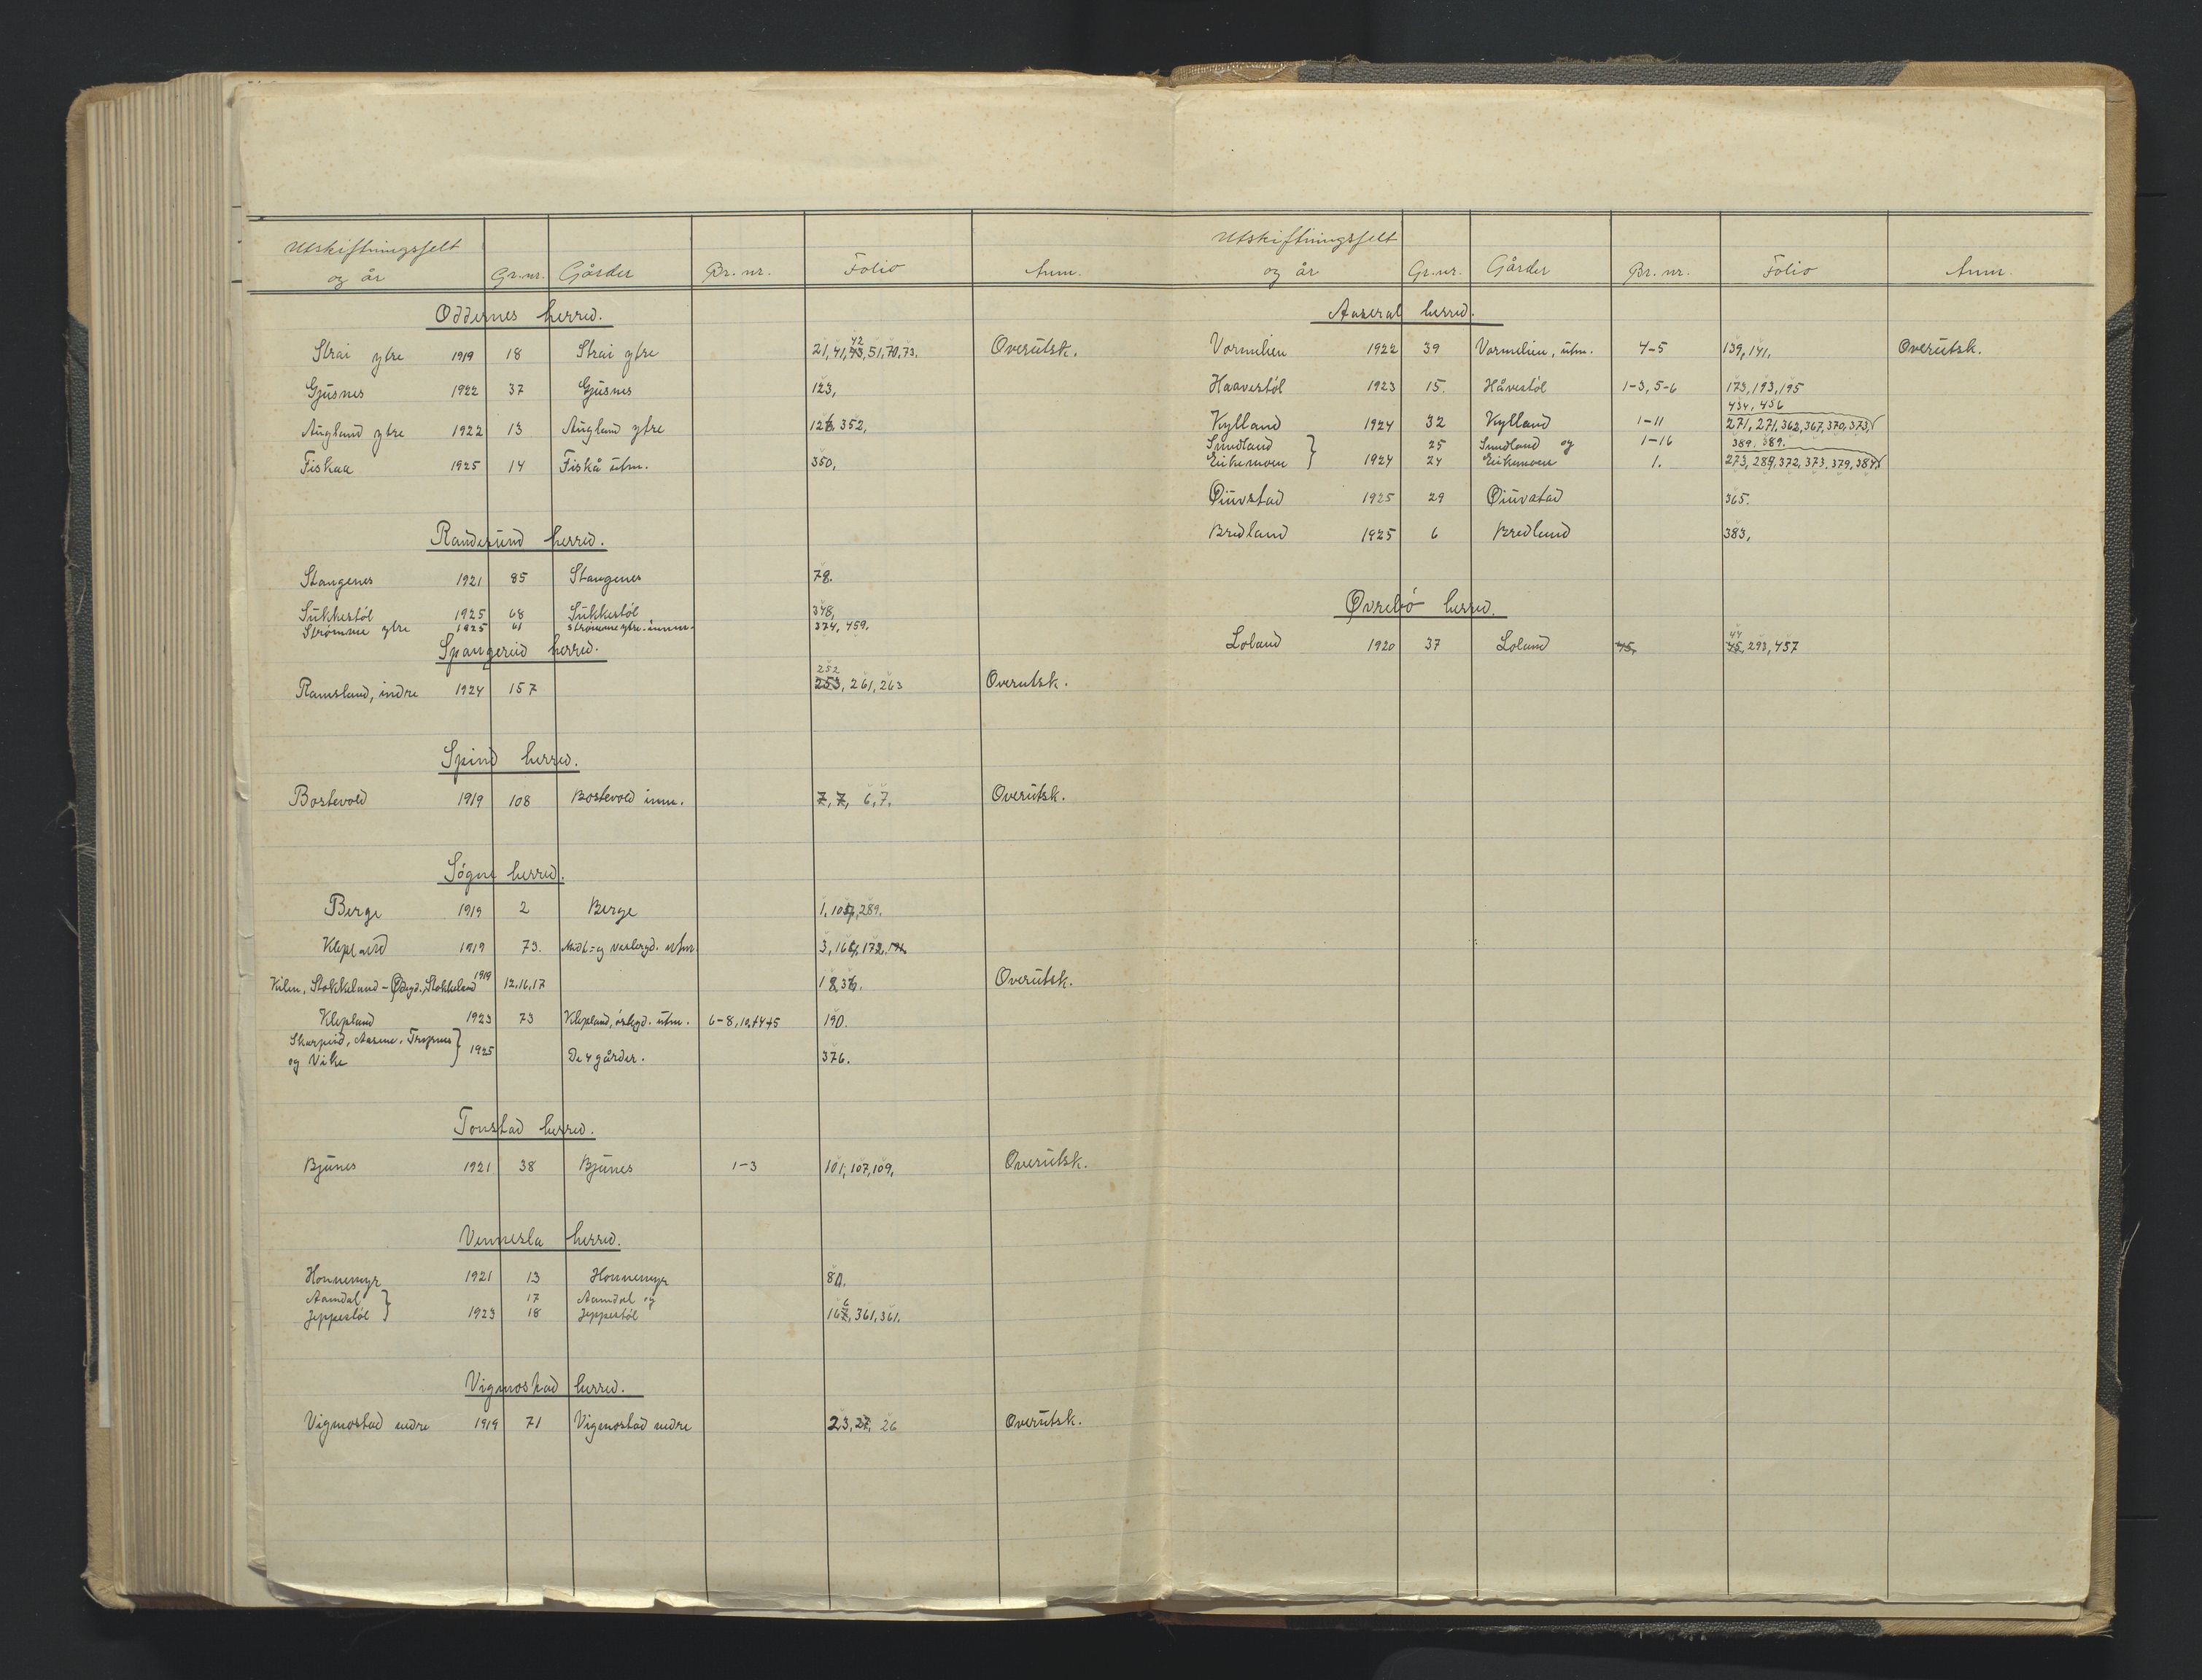 Utskiftningsfelt
og år Gr.nr. Gårder Br. nr. Folio Anm.
Oddernes herred.
Strai ytre 1919 18 Strai ytre 21, 41, 42, 51, 70, 73. Overutsk.
Gjusnes 1922 37 Gjusnes 123,
Augland ytre 1922 13 Augland ytre 352,
Fiskaa 1925 14 Fiskå utm. 350,
Randesund herred.
Stangenes 1921 85 Stangenes 78.
Sukkestøl 1925 68 Sukkestøl 348,
Strømme ytre 1925 61 Strømme ytre innm. 374, 459.
Spangereid herred.
252
Ramsland, indre 1924 157 253, 261, 263 Overutsk.
Spind herred.
Bostevold 1919 108 Bostevold inm. 7, 7, 6, 7. Overutsk.
Søgne herred.
Berge 1919 2 Berge 1, 289.
Klepland 1919 73. utm. 3,
Kilen, Stokkeland - Stokkeland 1919 12,16,17 18, Overutsk.
Klepland 1923 73 Klepland, østgd. utm. 6-8, 190.
Skarpeid, Aasene, Trysnes
og Vike 1925 De 4 gårder. 376.
Tonstad herred.
Bjunes 1921 38 Bjunes 1-3 101, 107, 109, Overutsk.
Vennesla herred.
Honnemyr 1921 13 Honnemyr 80.
Aamdal 17 Aamdal og
Jeppestøl } 1923 18 Jeppestøl 167, 361, 361.
Vigmostad herred.
Vigmostad nedre 1919 71 Vigmostad nedre 23, 27, 26 Overutsk.
Utskiftningsfelt
og år Gr.nr. Gårder Br. nr. Folio Anm.
Aaseral herred.
Vormelien 1922 39 Vormelien, utm. 4-5 139, 141, Overutsk.
Haavestøl 1923 15. Håvestøl 1-3, 5-6 173, 193, 195
434, 456
Kylland 1924 32 Kylland 1-11 271, 271, 362, 367, 370, 373,
Smedland 25 Smedland og 1-16 389, 389.
Eikemoen } 1924 24 Eikemoen 1. 273, 289, 372, 373, 379, 384
Øiuvstad 1925 29 Øiuvstad 365.
Bredland 1925 6 Bredland 383,
Øvrebø herred.
44
Loland 1920 37 Loland 45, 45, 293, 457